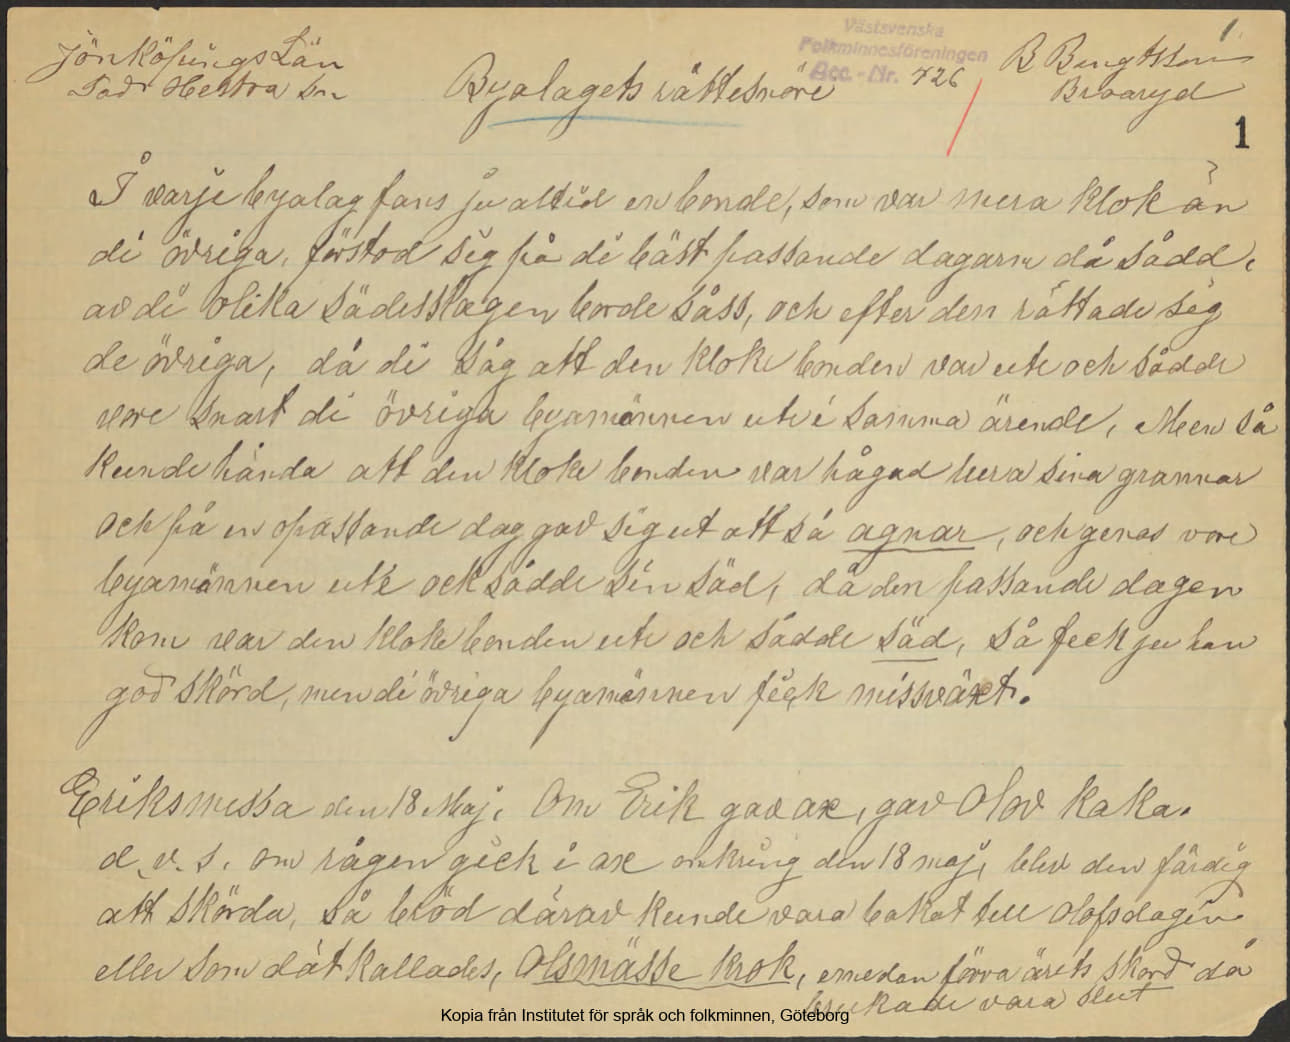 1.
Jönköpings Län
Västsvenska
Folkminnesföreningen
Acc.-Nr. 726
B Bengtsson
Södr Hestra sn
Byalagets rättesnöre
Braaryd
1
I varje byalag fans ju altid en bonde, som var mera klok än
di övriga, förstod sig på di bäst passande dagarn då sådd,
av di olika sädesslagen borde såss, och efter den rättade sig
de övriga, då di såg att den kloke bonden var ute och sådde
vore snart di övriga byamännen ute i samma ärende, Men så
kunde hända att den kloke bonden var hågad lura sina grannar
och på en opassande dag gav sig ut att så agnar, och genas vore
byamännen ute ock sådde sin säd, då den passande dagen
kom var den kloke bonden ute och sådde säd, så feck ju han
god skörd, men di övriga byamännen feck missväxt.
Eriksmessa den 18 Maj, Om Erik gav ax, gav Olov kaka.
d.v.s. om rågen gick i ax omkring den 18 maj, blev den färdig
att skörda, så bröd därav kunde vara bakat till olofsdagen
eller som dät kallades, Olsmässe krok, emedan förra årets skörd då
brukade vara slut
Kopia från Institutet för språk och folkminnen, Göteborg